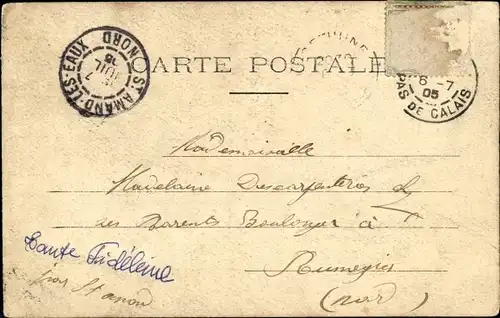 ST AMAND-LES-EAUX
NORD
7
JUIL
05
CARTE POSTALE
6 -7
05
PAS DE CALAIS
Mademoiselle
Madelaine Descarpentries
ses Parents Boulanger à
Rumegies
(Nord)
Tante Fidéleine
par St Amand